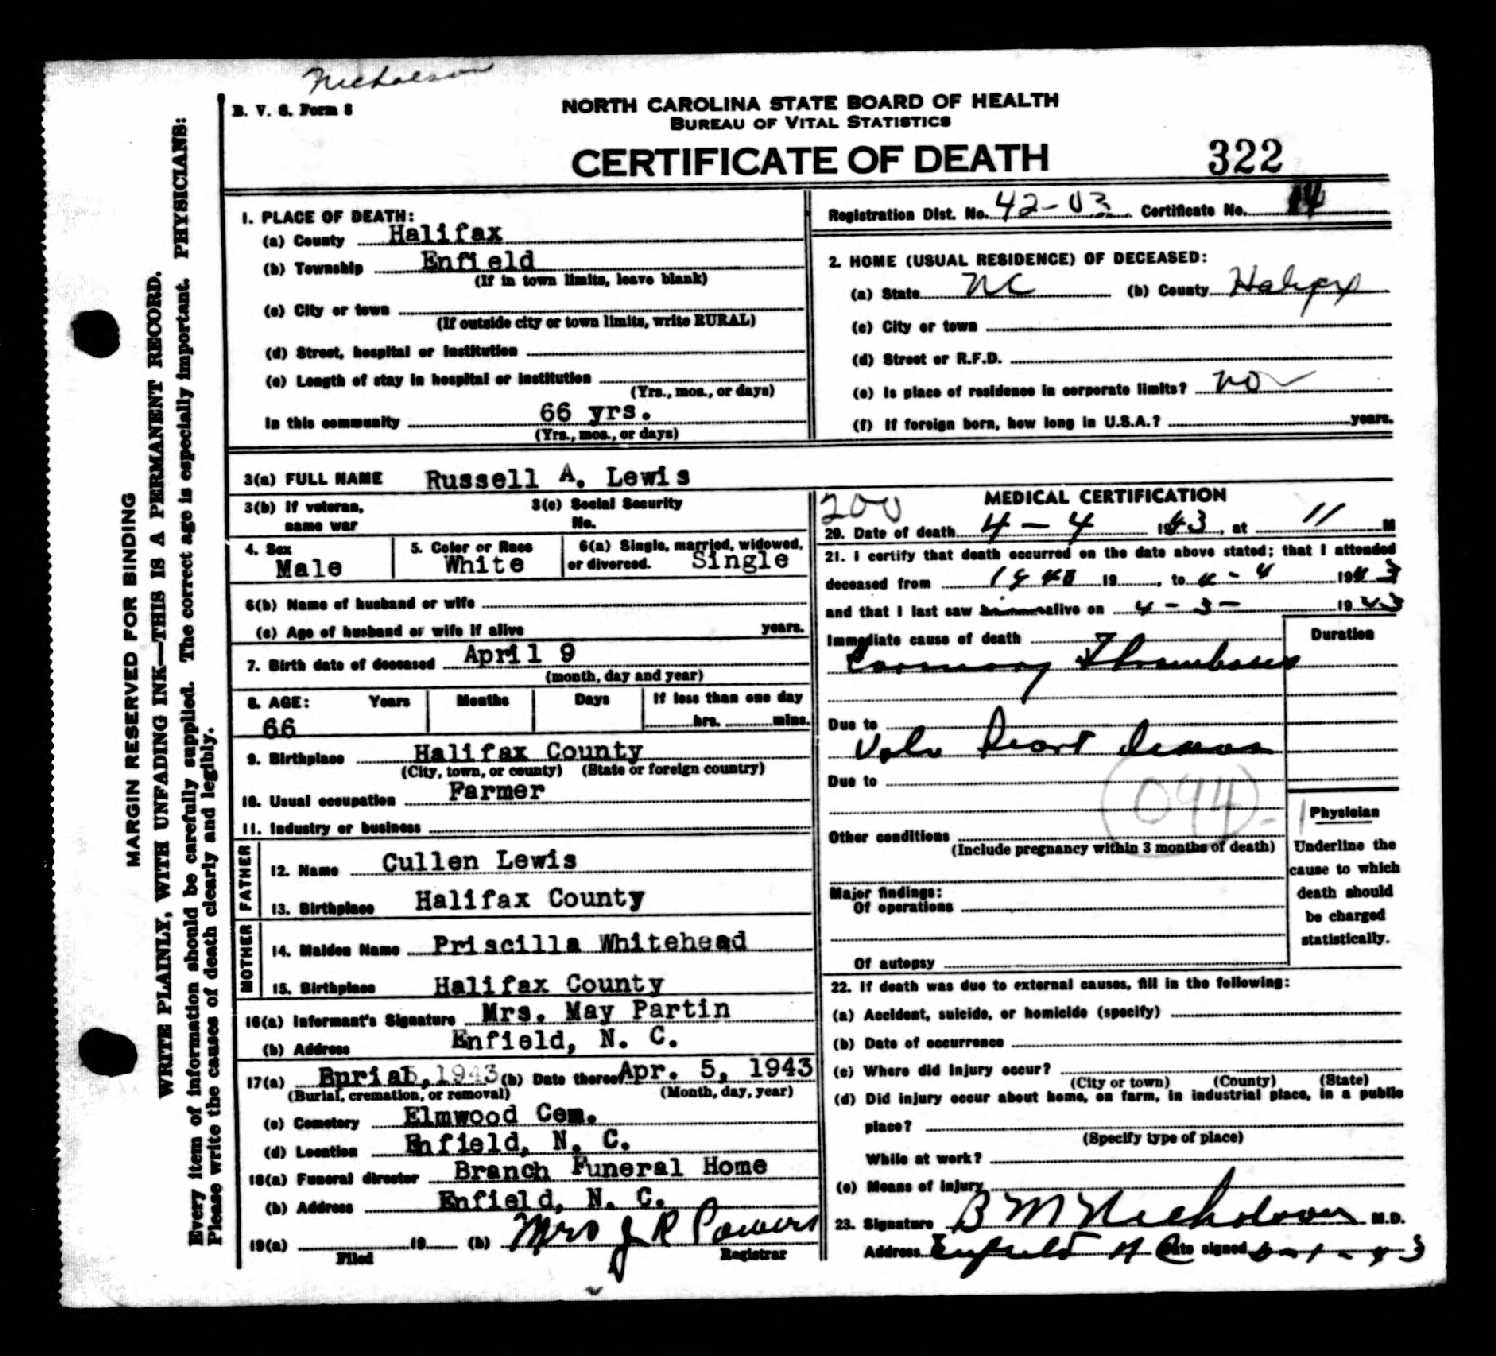 Nicholson
B. V. S. Form 8
NORTH CAROLINA STATE BOARD OF HEALTH
BUREAU OF VITAL STATISTICS
CERTIFICATE OF DEATH
322
Registration Dist. No. 42-03 Certificate No. 14
1. PLACE OF DEATH:
(a) County Halifax
(b) Township Enfield
(If in town limits, leave blank)
(c) City or town
(If outside city or town limits, write RURAL)
(d) Street, hospital or institution
(e) Length of stay in hospital or institution
(Yrs., mos., or days)
In this community 66 yrs.
(Yrs., mos., or days)
2. HOME (USUAL RESIDENCE) OF DECEASED:
(a) State NC (b) County Halifax
(c) City or town
(d) Street or R.F.D.
(e) Is place of residence in corporate limits? no
(f) If foreign born, how long in U.S.A.? years.
3(a) FULL NAME Russell A. Lewis
3(b) If veteran, name war
3(c) Social Security No.
4. Sex Male
5. Color or Race White
6(a) Single, married, widowed, or divorced. Single
6(b) Name of husband or wife
(c) Age of husband or wife if alive years.
7. Birth date of deceased April 9
(month, day and year)
8. AGE: Years Months Days If less than one day
66 hrs. mins.
9. Birthplace Halifax County
(City, town, or county) (State or foreign country)
10. Usual occupation Farmer
11. Industry or business
FATHER
12. Name Cullen Lewis
13. Birthplace Halifax County
MOTHER
14. Maiden Name Priscilla Whitehead
15. Birthplace Halifax County
16(a) Informant's Signature Mrs. May Partin
(b) Address Enfield, N. C.
17(a) 5, 1943 (b) Date thereof Apr. 5, 1943
(Burial, cremation, or removal) (Month, day, year)
(c) Cemetery Elmwood Cem.
(d) Location Enfield, N. C.
18(a) Funeral director Branch Funeral Home
(b) Address Enfield, N. C.
19(a) 19 (b) Mrs J R Powers
Filed Registrar
200
MEDICAL CERTIFICATION
20. Date of death 4-4 1943, at 11 M
21. I certify that death occurred on the date above stated; that I attended
deceased from 1940 19 , to 4-4 1943
and that I last saw him alive on 4-3- 1943
Immediate cause of death Duration
Coronary Thrombosis
Due to
Valv Heart Disease
Due to
094-1
Other conditions
(Include pregnancy within 3 months of death)
Major findings:
Of operations
Of autopsy
Physician
Underline the
cause to which
death should
be charged
statistically.
22. If death was due to external causes, fill in the following:
(a) Accident, suicide, or homicide (specify)
(b) Date of occurrence
(c) Where did injury occur?
(City or town) (County) (State)
(d) Did injury occur about home, on farm, in industrial place, in a public
place?
(Specify type of place)
While at work?
(e) Means of injury
23. Signature B M Nicholson M.D.
Address Enfield N C Date signed
MARGIN RESERVED FOR BINDING
WRITE PLAINLY, WITH UNFADING INK—THIS IS A PERMANENT RECORD.
Every item of information should be carefully supplied. The correct age is especially important. PHYSICIANS:
Please write the causes of death clearly and legibly.